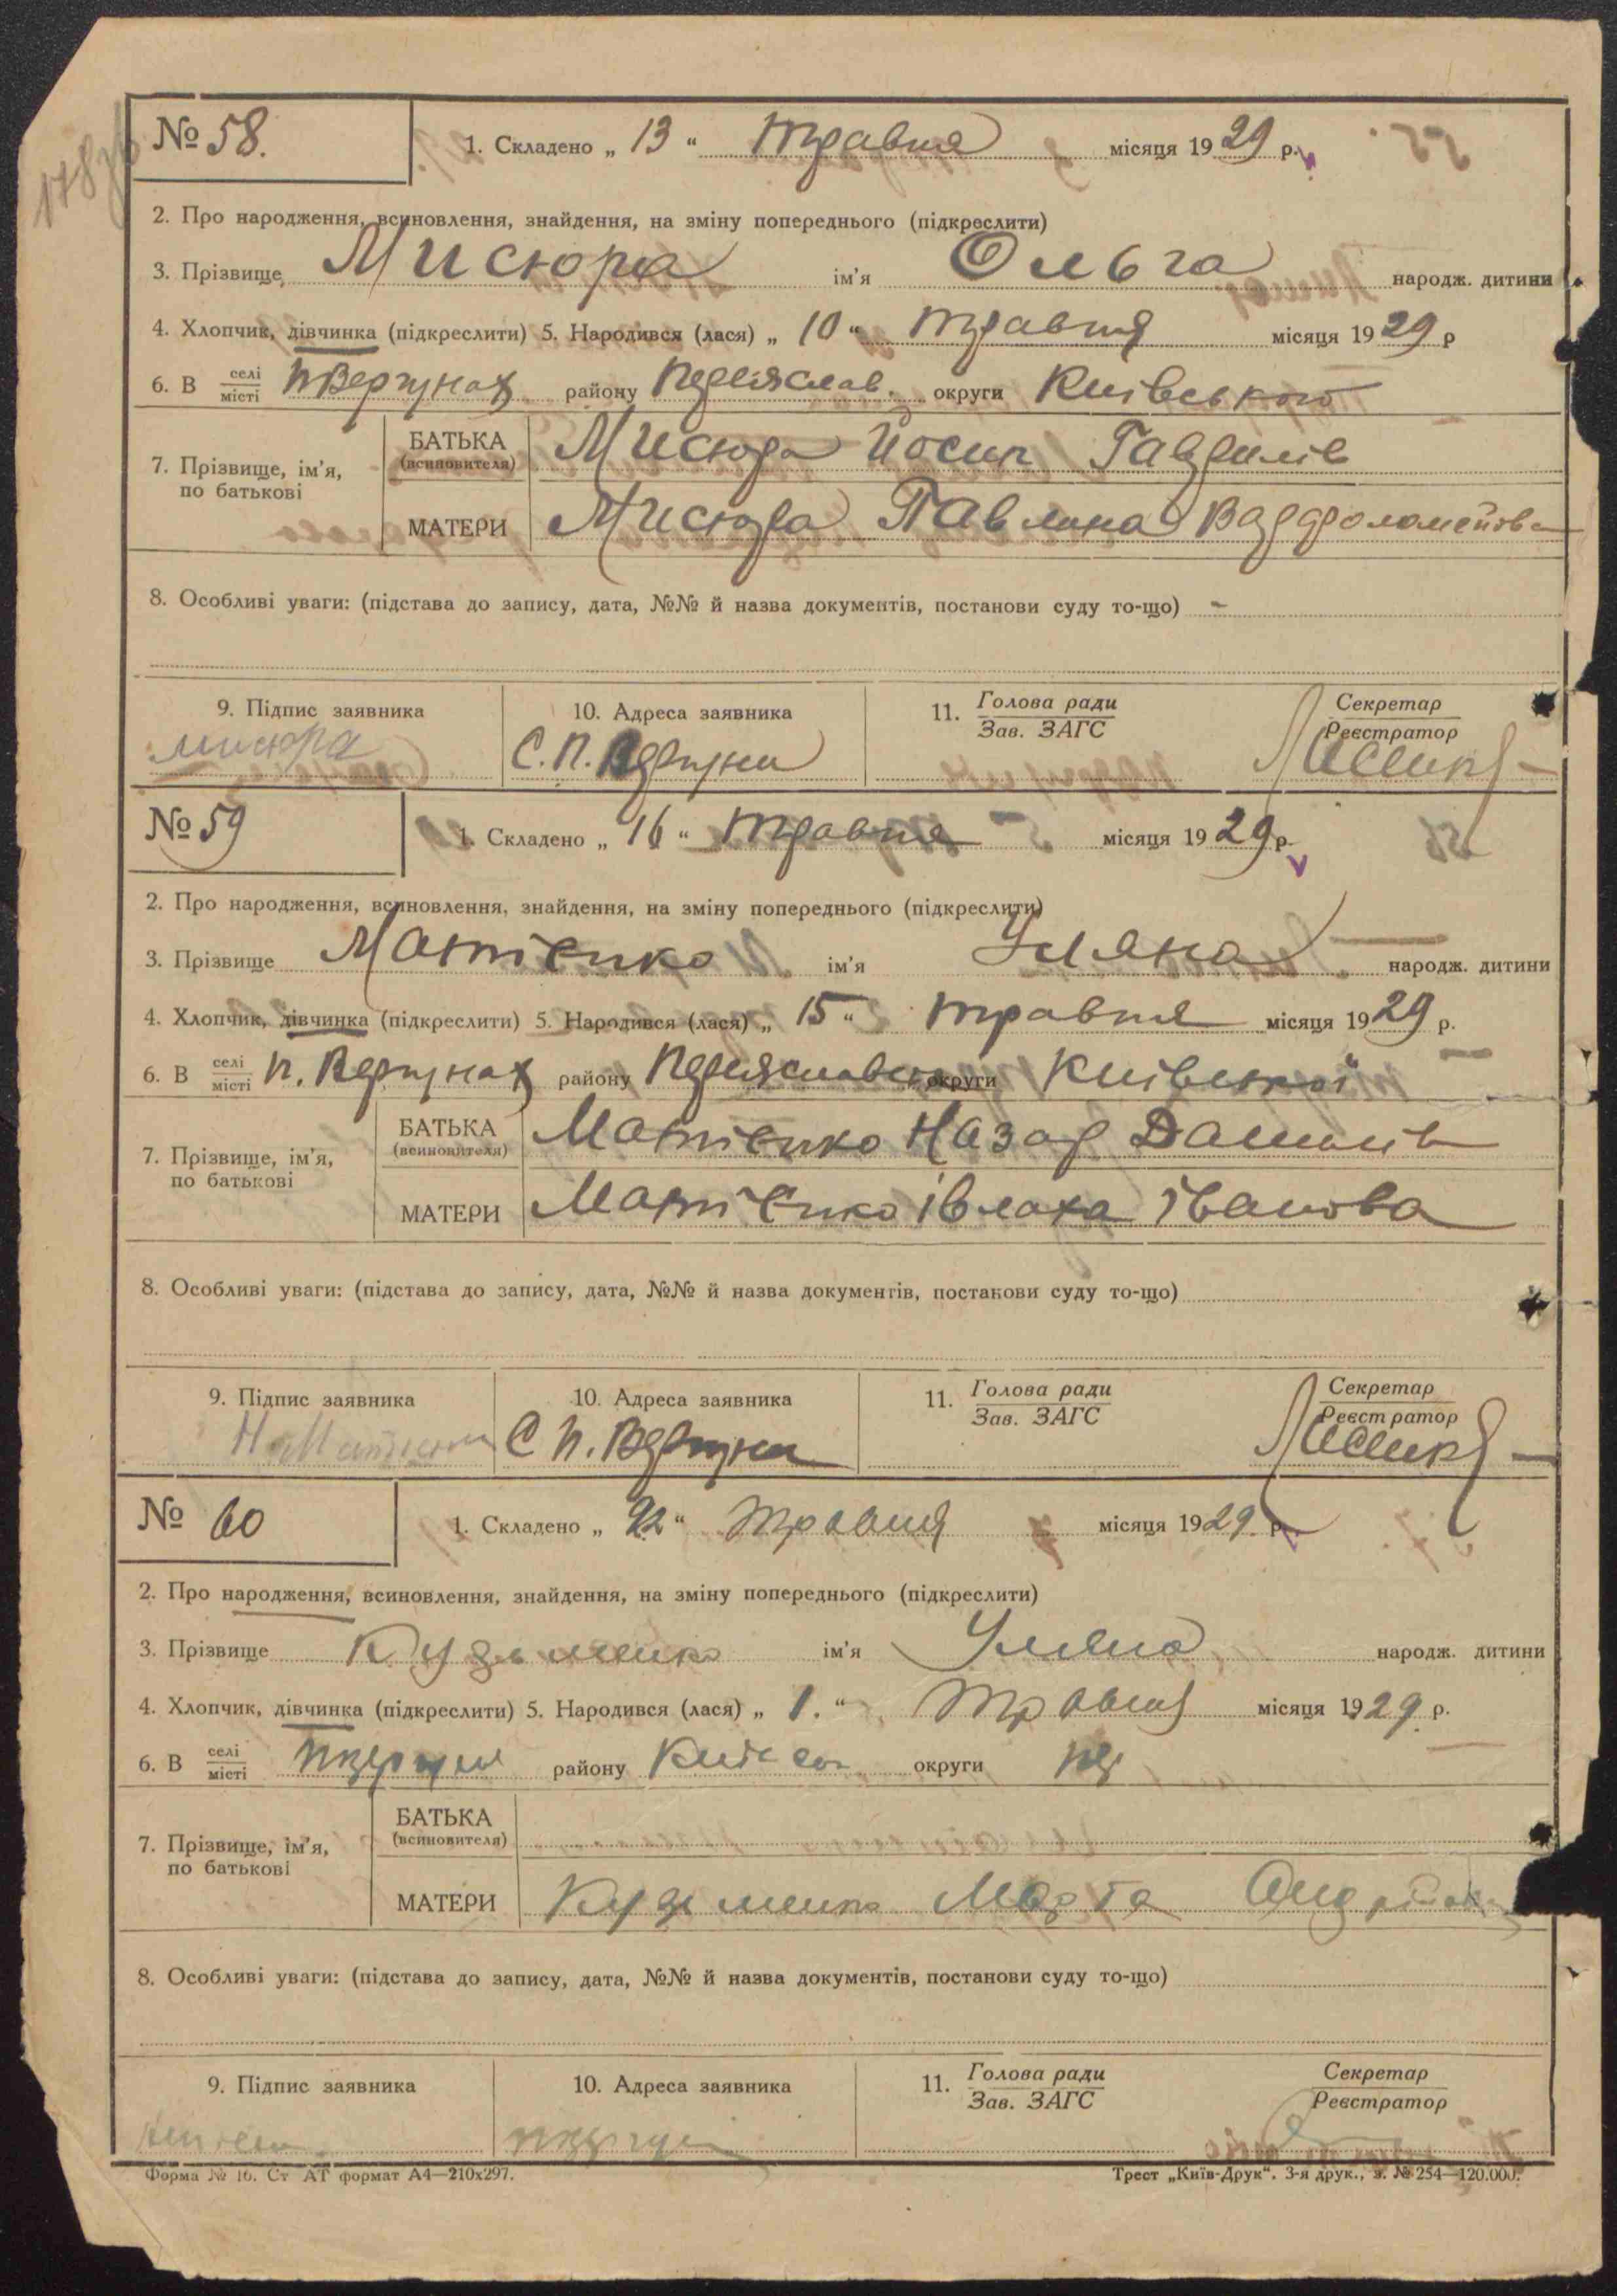 178
№ 58. 1. Складено „ 13 “ травня місяця 1929 р.
2. Про народження, всиновлення, знайдення, на зміну попереднього (підкреслити)
3. Прізвище Мисюра ім’я Ольга народж. дитини
4. Хлопчик, дівчинка (підкреслити) 5. Народився (лася) „ 10 “ травня місяця 1929 р
6. В селі місті П Вергунах району Переяслав. округи Київського
7. Прізвище, ім’я, по батькові БАТЬКА (всиновителя) Мисюра Йосип Гаврилів
МАТЕРИ Мисюра Павлина Варфоломейова
8. Особливі уваги: (підстава до запису, дата, №№ й назва документів, постанови суду то-що) -
9. Підпис заявника 10. Адреса заявника 11. Голова ради Зав. ЗАГС Секретар Реєстратор
мисюра С. П. Вергуни
№ 59 1. Складено „ 16 “ травня місяця 1929 р.
2. Про народження, всиновлення, знайдення, на зміну попереднього (підкреслити)
3. Прізвище Матієнко ім’я Уляна народж. дитини
4. Хлопчик, дівчинка (підкреслити) 5. Народився (лася) „ 15 “ травня місяця 1929 р.
6. В селі місті П. Вергунах району округи Київської
7. Прізвище, ім’я, по батькові БАТЬКА (всиновителя) Матієнко Назар Данилів
МАТЕРИ Матієнко Івлаха Іванова
8. Особливі уваги: (підстава до запису, дата, №№ й назва документів, постанови суду то-що)
9. Підпис заявника 10. Адреса заявника 11. Голова ради Зав. ЗАГС Секретар Реєстратор
С П. Вергуни
№ 60 1. Складено „ 22 “ травня місяця 1929 р.
2. Про народження, всиновлення, знайдення, на зміну попереднього (підкреслити)
3. Прізвище Кузьменко ім’я Уляна народж. дитини
4. Хлопчик, дівчинка (підкреслити) 5. Народився (лася) „ 1. “ травня місяця 1929 р.
6. В селі місті району округи
7. Прізвище, ім’я, по батькові БАТЬКА (всиновителя)
МАТЕРИ Кузьменко Марта
8. Особливі уваги: (підстава до запису, дата, №№ й назва документів, постанови суду то-що)
9. Підпис заявника 10. Адреса заявника 11. Голова ради Зав. ЗАГС Секретар Реєстратор
Форма № 16. Ст АТ формат А4—210х297. Трест „Київ-Друк“. 3-я друк., з. № 254—120.000.